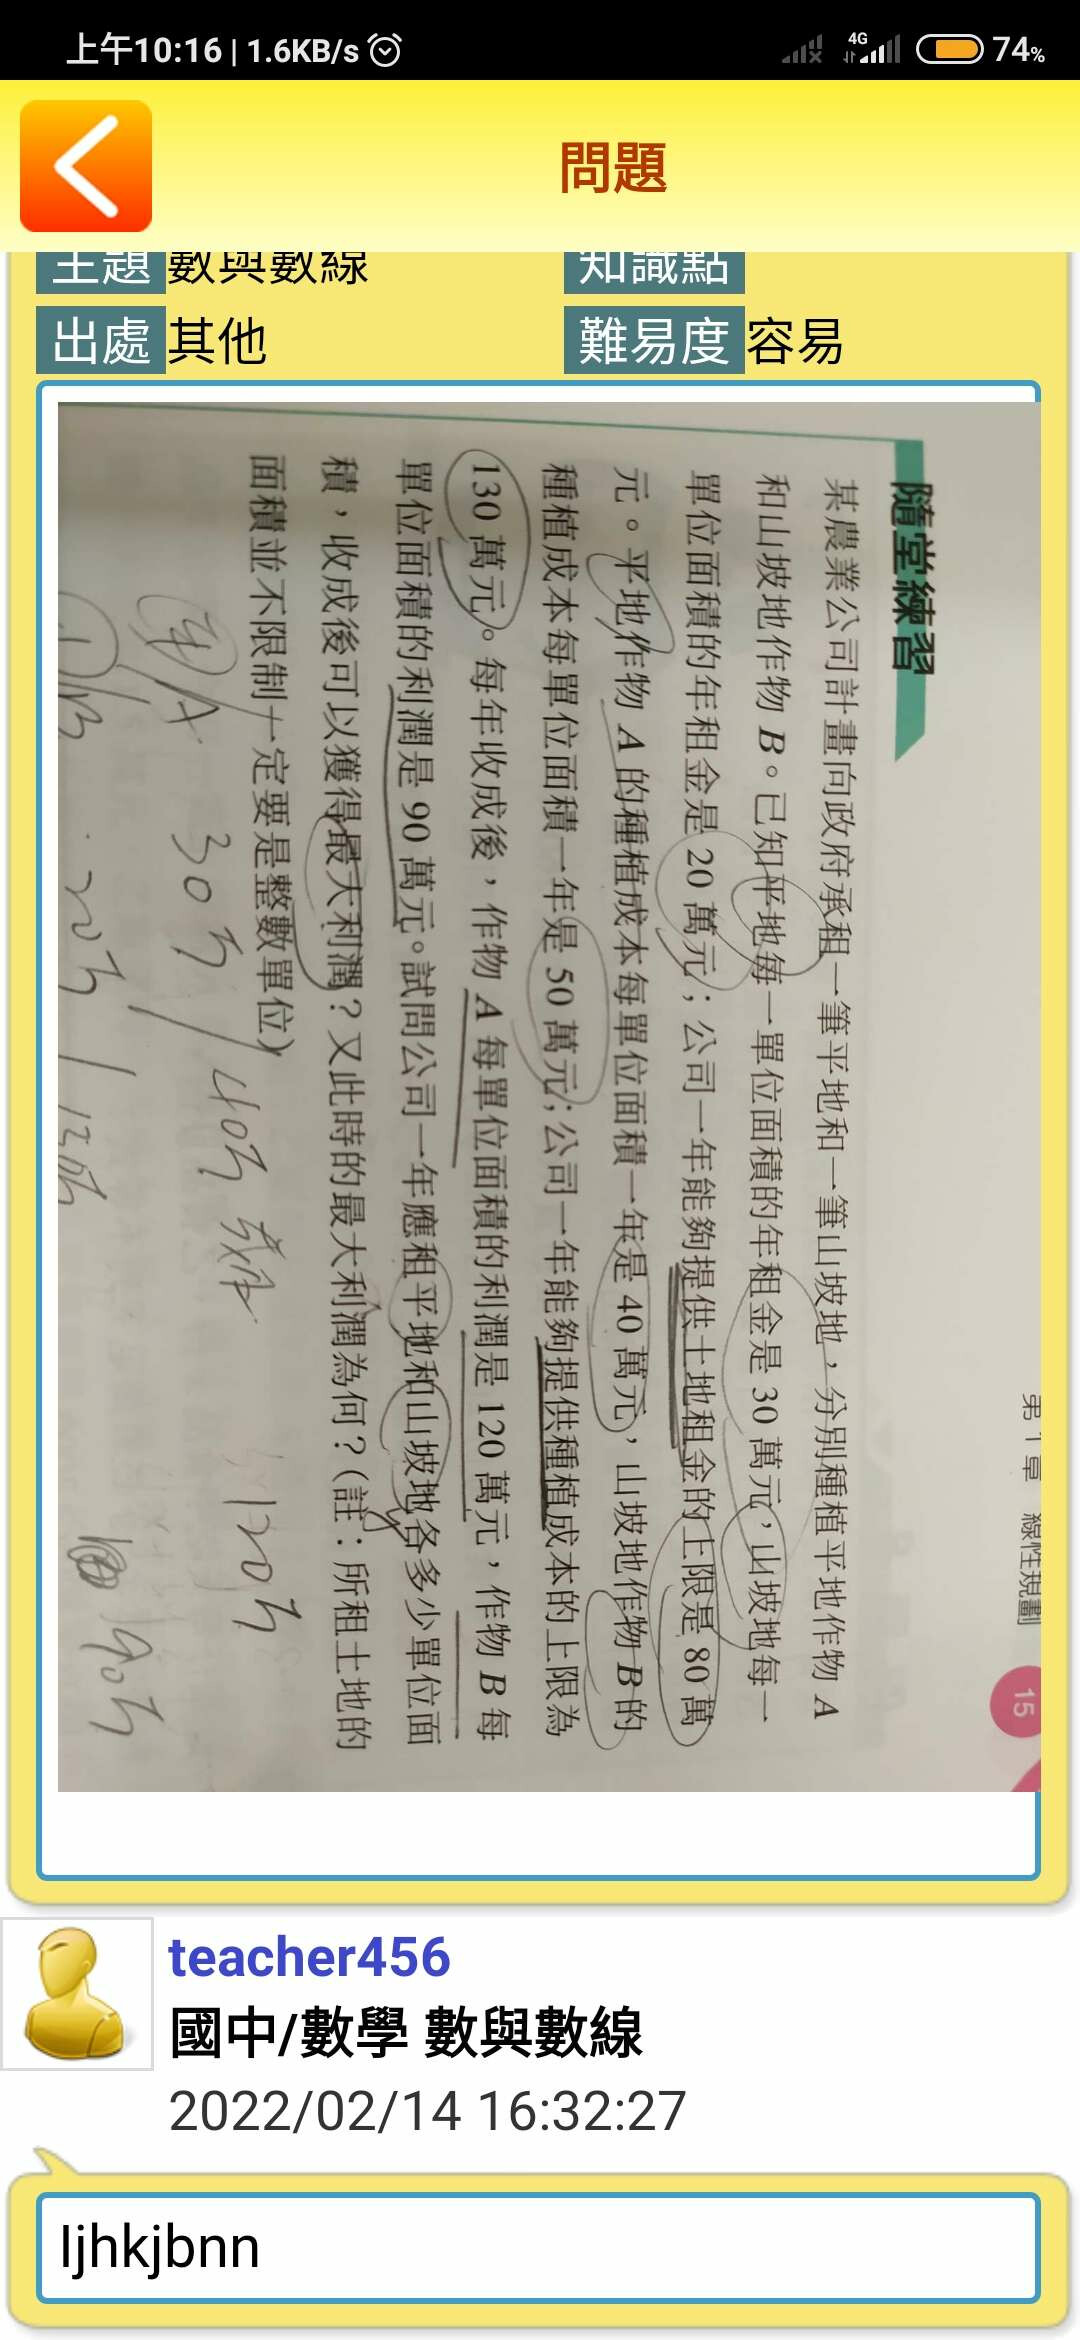 上午10:16 | 1.6KB/s
4G
74%
問題
主題 數與數線 知識點
出處 其他 難易度 容易
第1章 線性規劃 15
隨堂練習
某農業公司計畫向政府承租一筆平地和一筆山坡地，分別種植平地作物 A
和山坡地作物 B。已知平地每一單位面積的年租金是 30 萬元，山坡地每一
單位面積的年租金是 20 萬元；公司一年能夠提供土地租金的上限是 80 萬
元。平地作物 A 的種植成本每單位面積一年是 40 萬元，山坡地作物 B 的
種植成本每單位面積一年是 50 萬元；公司一年能夠提供種植成本的上限為
130 萬元。每年收成後，作物 A 每單位面積的利潤是 120 萬元，作物 B 每
單位面積的利潤是 90 萬元。試問公司一年應租平地和山坡地各多少單位面
積，收成後可以獲得最大利潤？又此時的最大利潤為何？（註：所租土地的
面積並不限制一定要是整數單位）
y
平/A 30万/40万 120万
山/B 20万/
90万
teacher456
國中/數學 數與數線
2022/02/14 16:32:27
ljhkjbnn